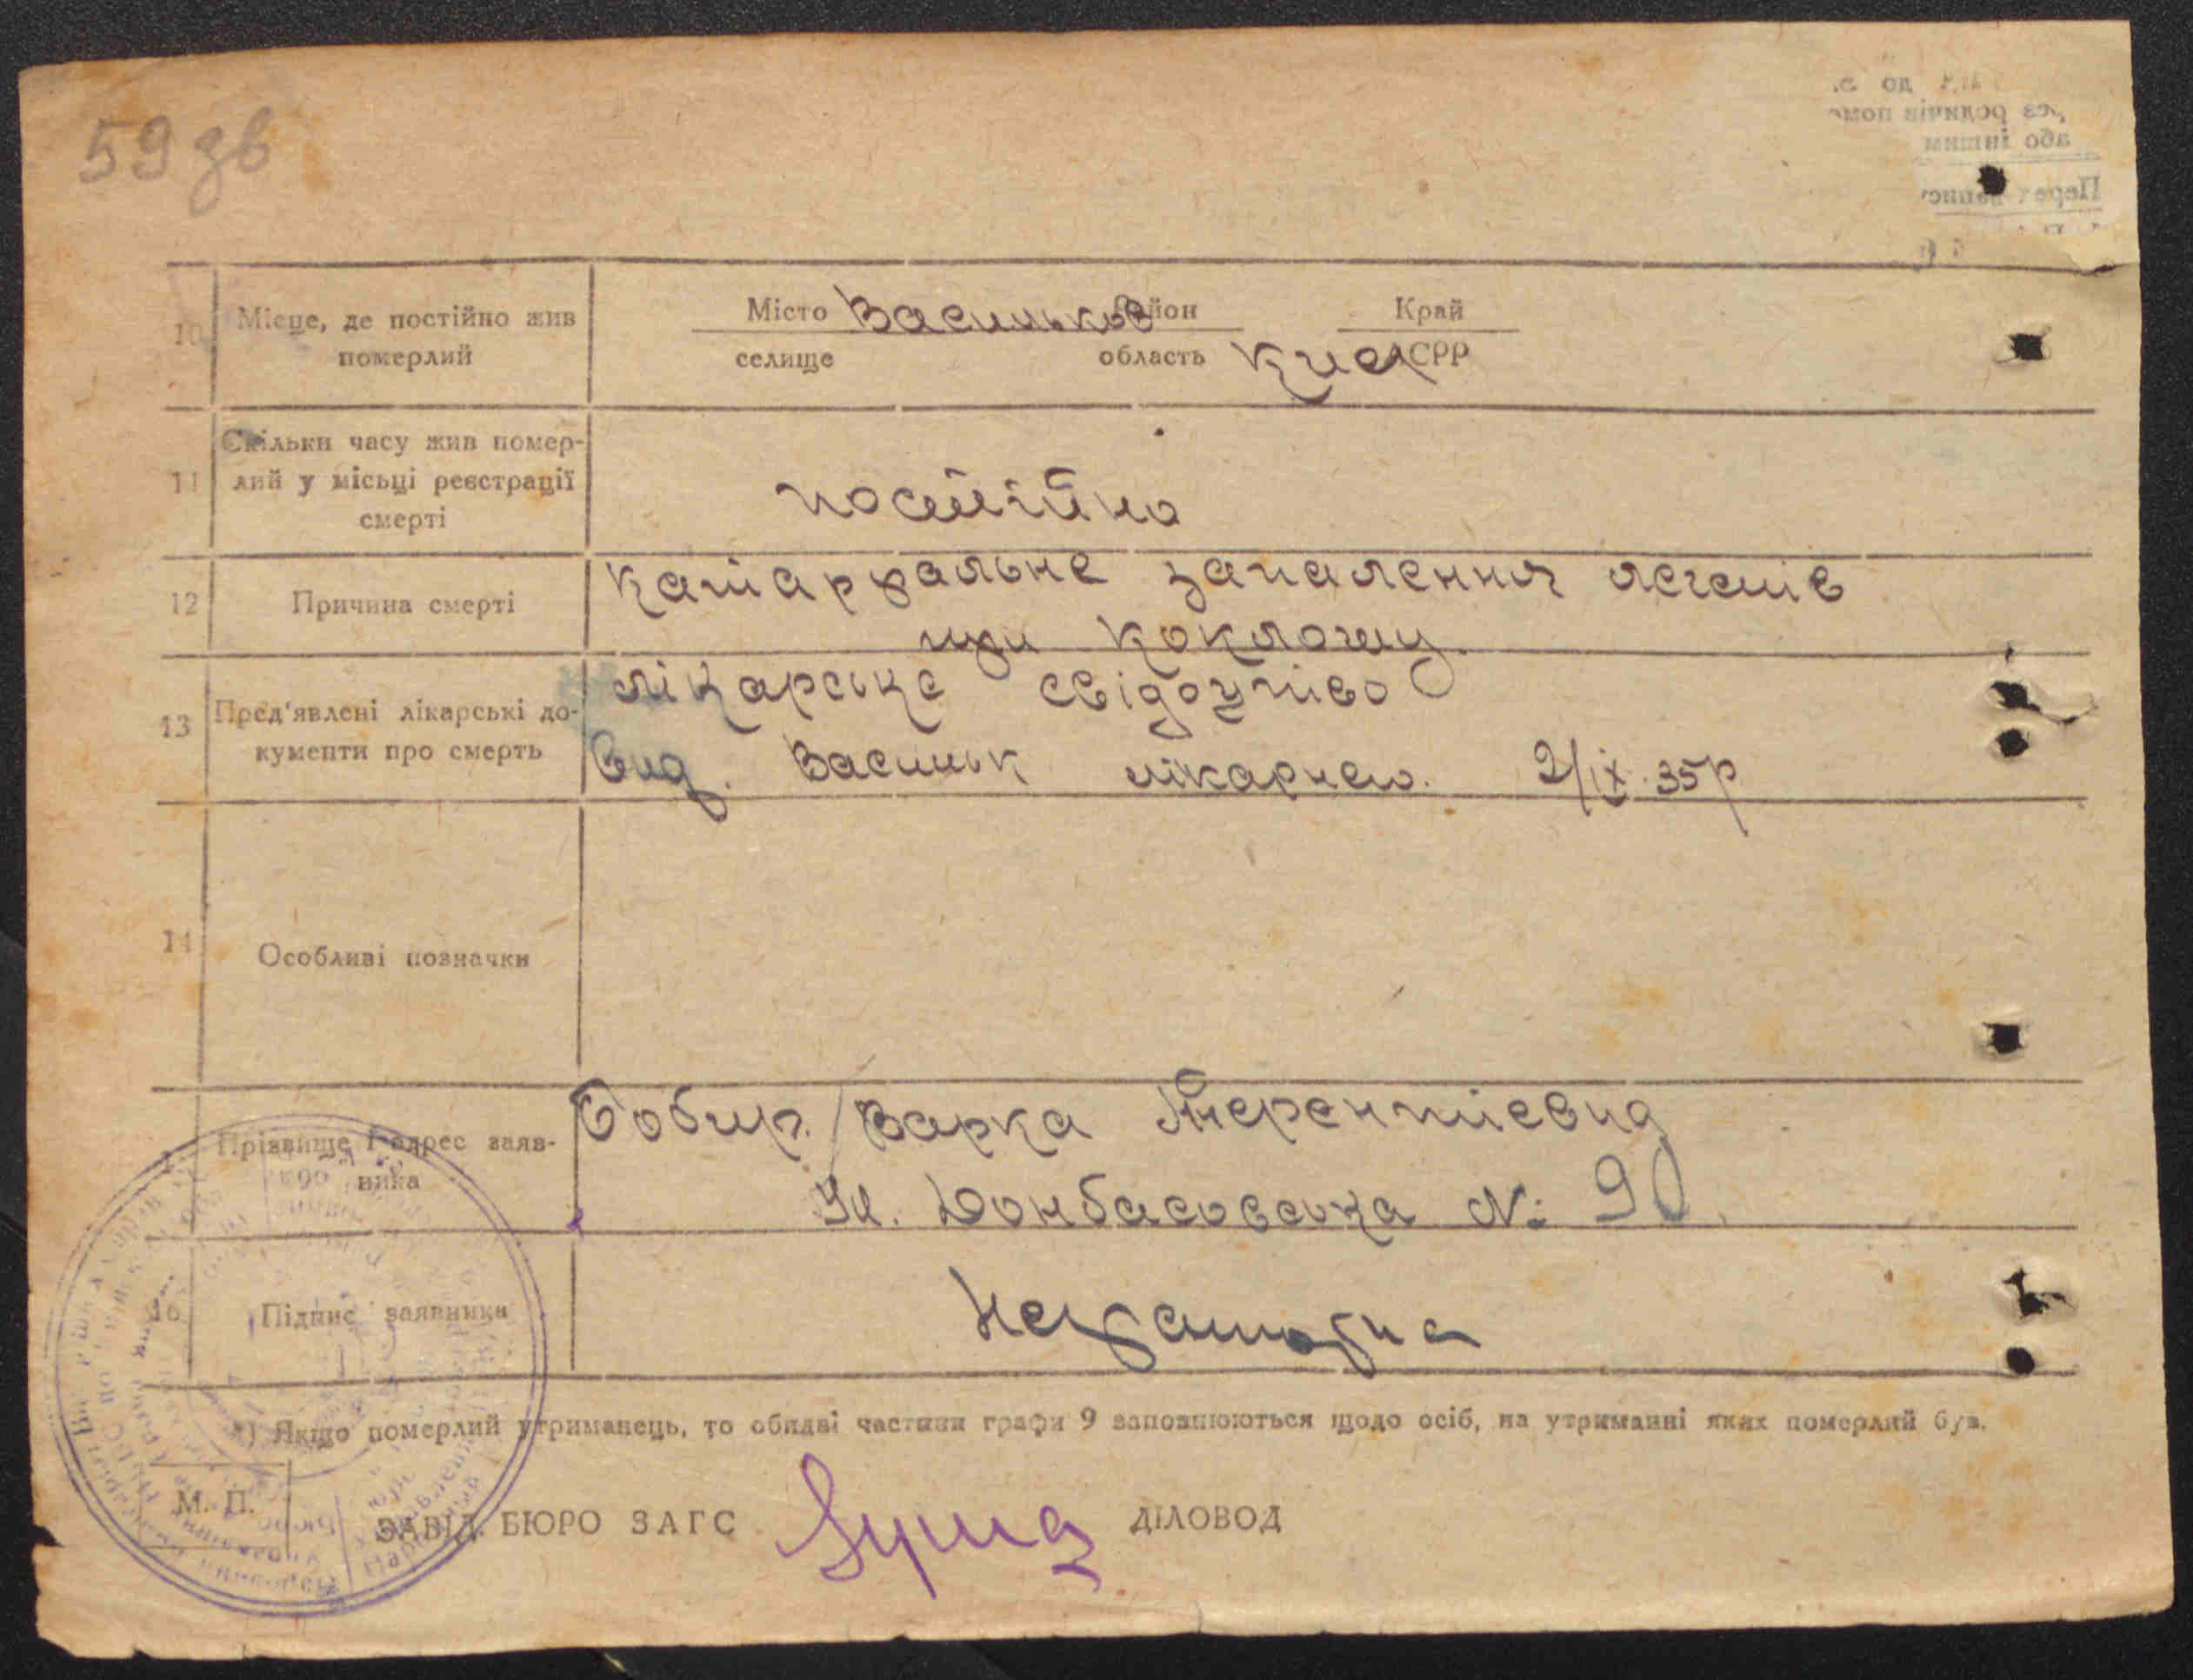 59 зв
10 Місце, де постійно жив померлий
Місто Васильков район Край
селище область Киев АСРР
11 Скільки часу жив помер-
лий у місьці реєстрації
смерті
постійно
12 Причина смерті
катарральне запалення легенів
при коклюшу
13 Пред'явлені лікарські до-
кументи про смерть
лікарське свідоцтво
вид. Васильк лікарнею. 2/ІХ.35р
14 Особливі позначки
Прізвище і адрес заяв-
ника
Варка Терентіевна
Ул. Донбасовська № 90
16 Підпис заявника
*) Якщо померлий утриманець, то обидві частини графи 9 заповнюються щодо осіб, на утриманні яких померлий був.
М. П.
ЗАВІД. БЮРО ЗАГС ДІЛОВОД